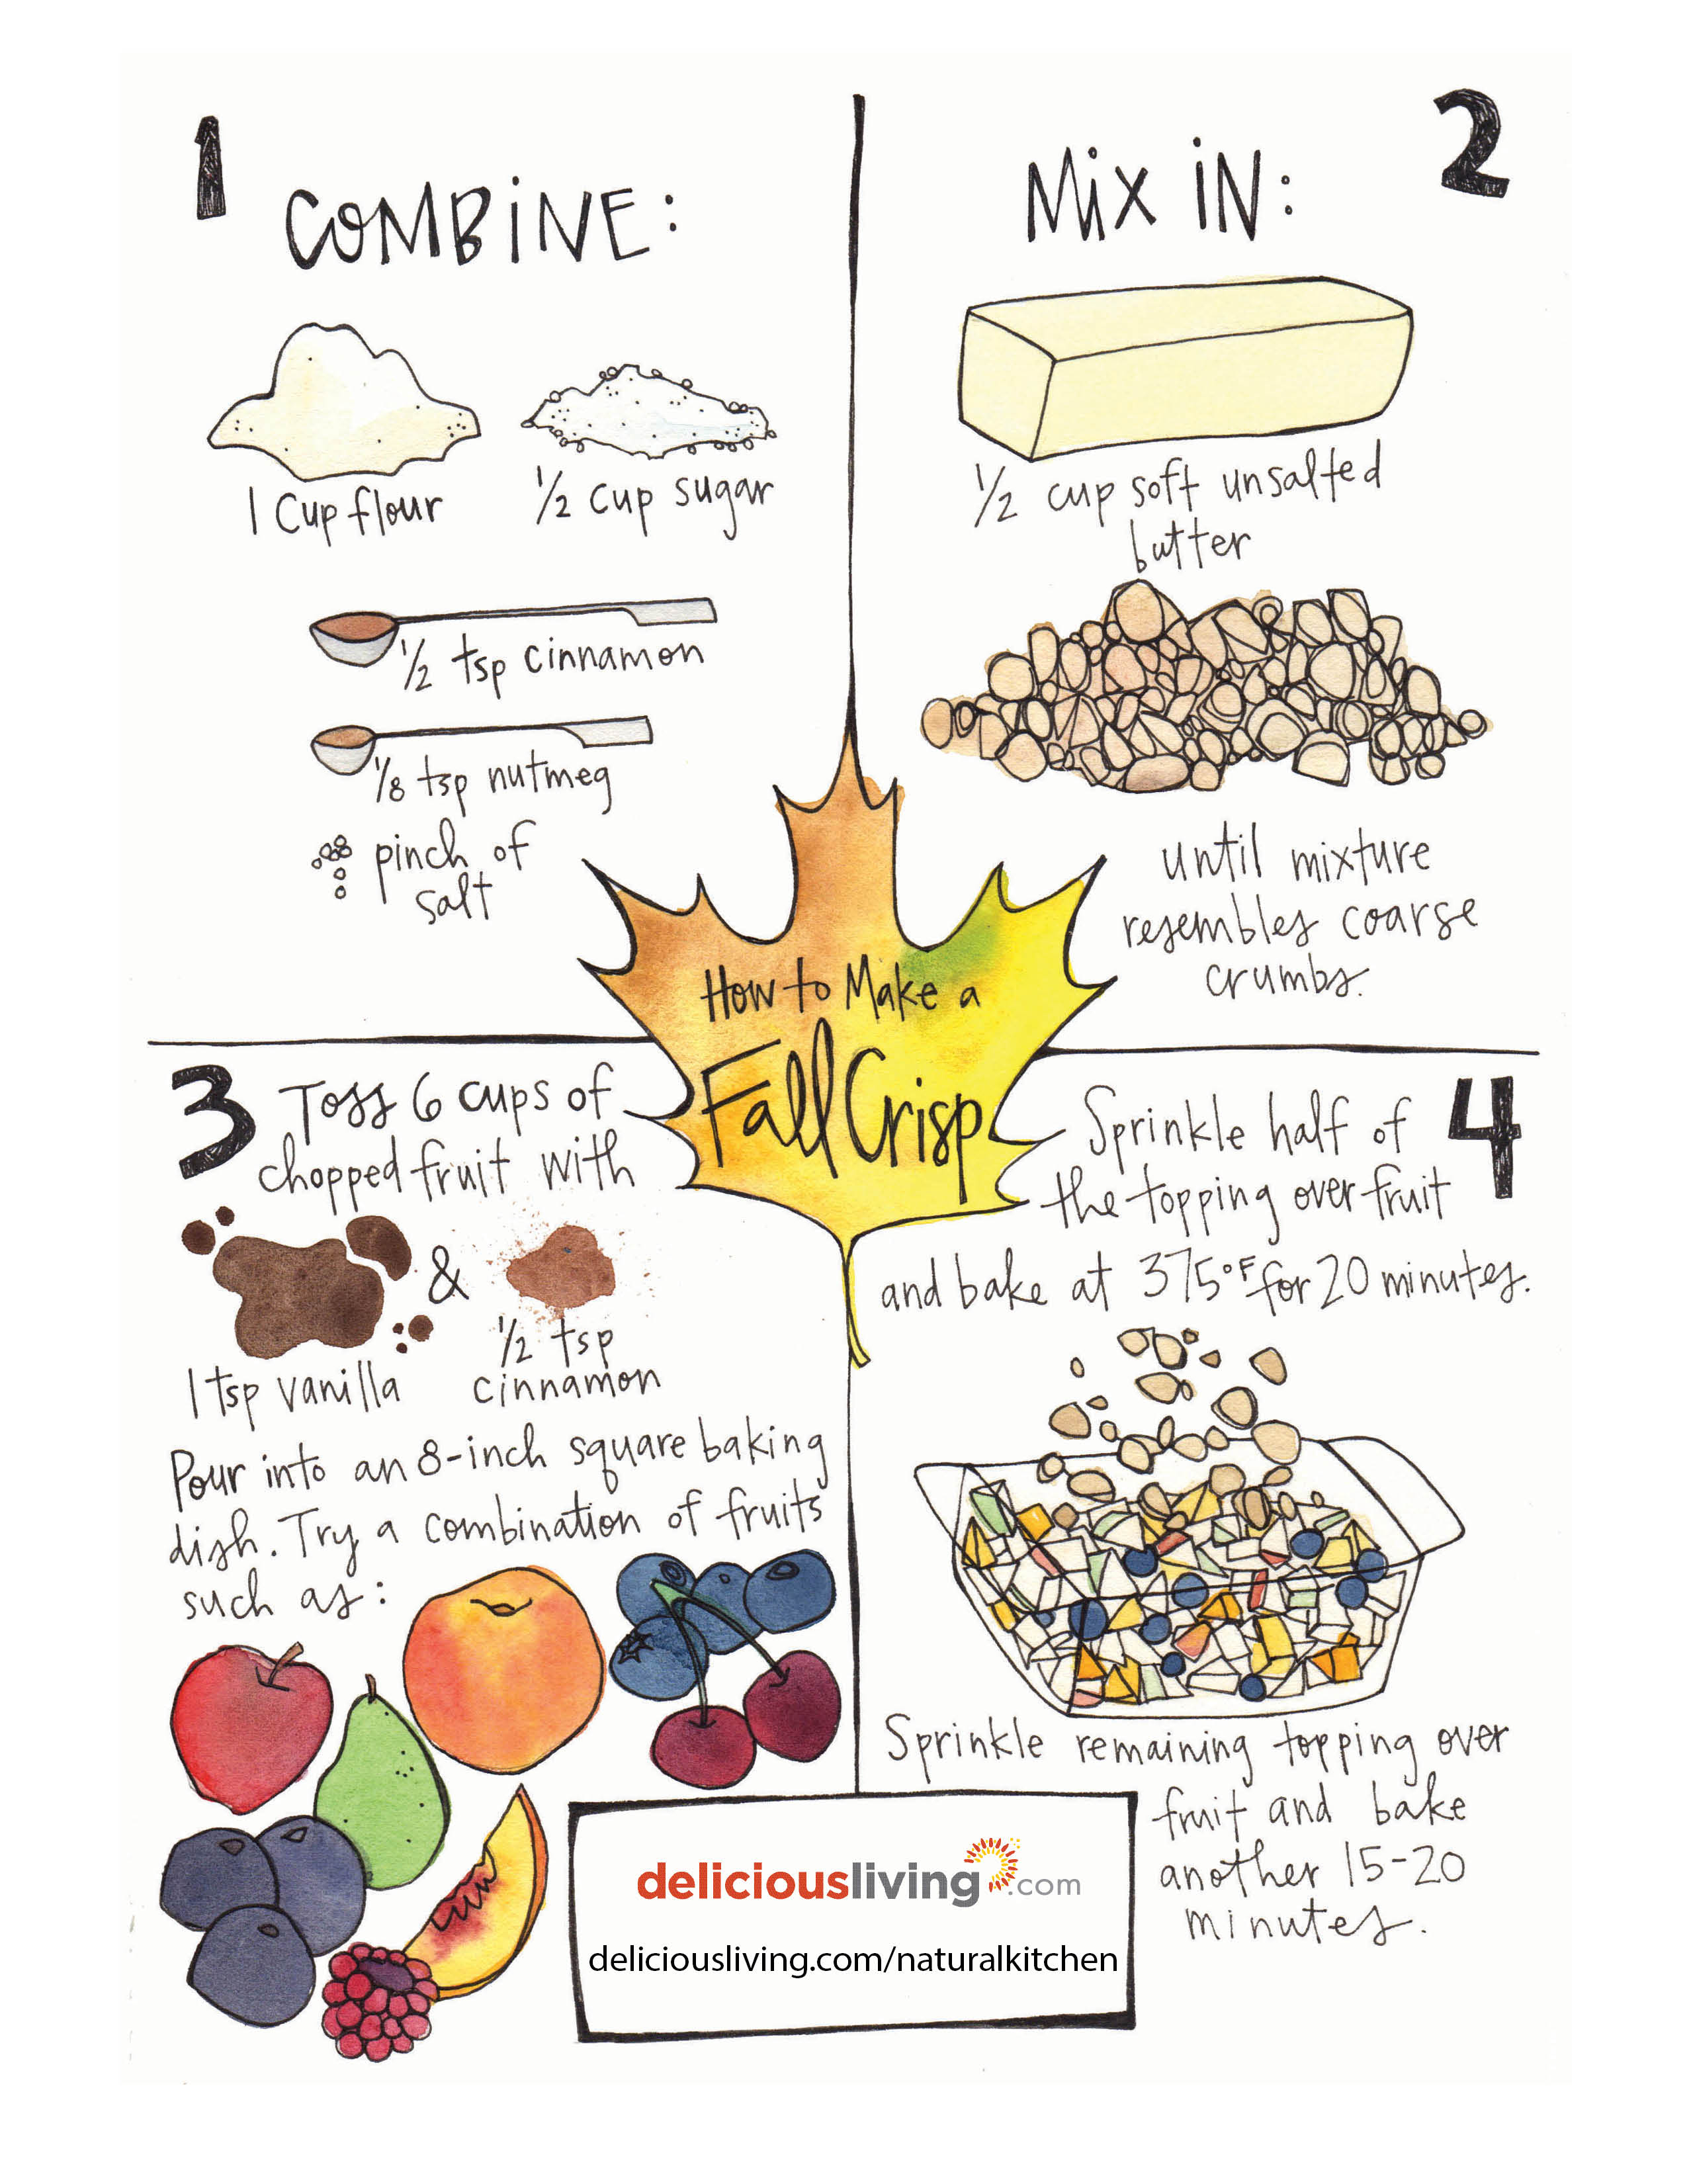 1
COMBINE:
1 Cup flour
1/2 cup sugar
1/2 tsp cinnamon
1/8 tsp nutmeg
pinch of
salt
2
Mix iN:
1/2 cup soft unsalted
butter
until mixture
resembles coarse
crumbs.
How to Make a
Fall Crisp
3
Toss 6 cups of
chopped fruit with
&
1 tsp vanilla
1/2 tsp
cinnamon
Pour into an 8-inch square baking
dish. Try a combination of fruits
such as:
4
Sprinkle half of
the topping over fruit
and bake at 375°F for 20 minutes.
Sprinkle remaining topping over
fruit and bake
another 15-20
minutes.
deliciousliving.com
deliciousliving.com/naturalkitchen